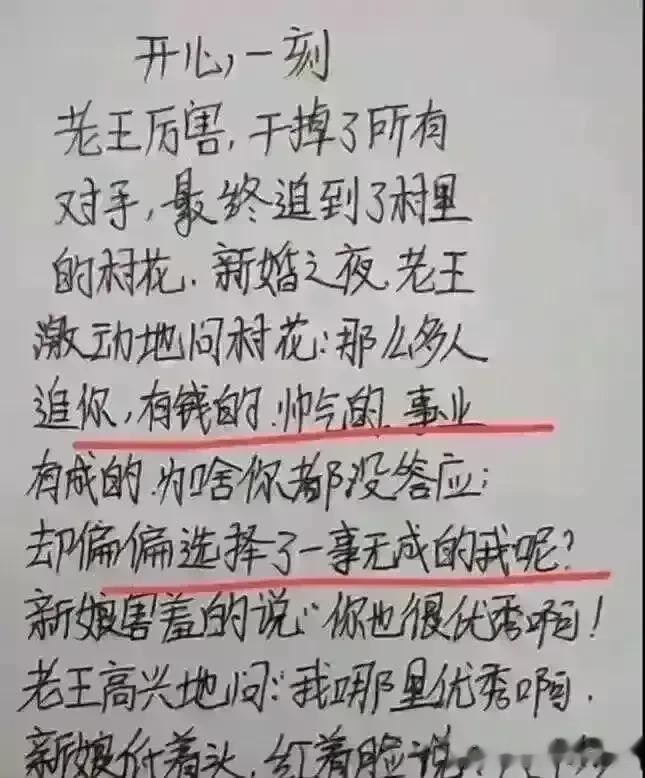 开心一刻
老王厉害,干掉了所有
对手,最终追到了村里
的村花.新婚之夜.老王
激动地问村花:那么多人
追你,有钱的.帅气的.事业
有成的.为啥你都没答应;
却偏偏选择了一事无成的我呢?
新娘害羞的说:“你也很优秀啊!
老王高兴地问:“我哪里优秀啊.
新娘低着头,红着脸说